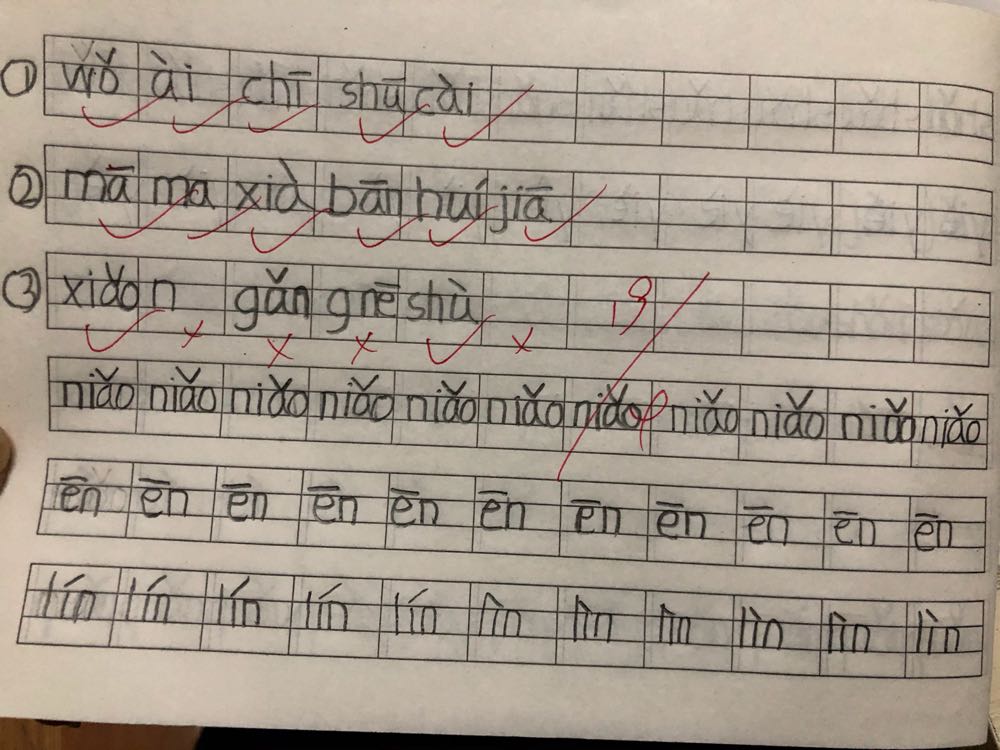 ① wǒ ài chī shū cài
② mā ma xià bān huí jiā
③ xiǎo n gǎn gnē shù
niǎo niǎo niǎo niǎo niǎo niǎo niǎo niǎo niǎo niǎo niǎo
ēn ēn ēn ēn ēn ēn ēn ēn ēn ēn ēn
lín lín lín lín lín lìn lìn lìn lìn lìn lìn